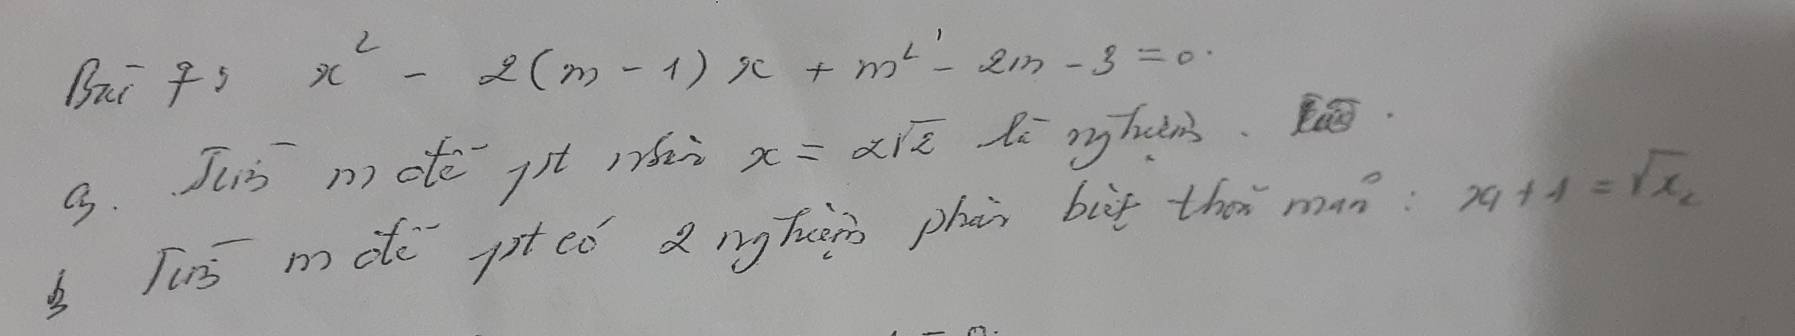 Bài 7: x² - 2(m - 1)x + m² - 2m - 3 = 0.
a. Tìm m để pt nhận x = 2√2 là nghiệm.
b. Tìm m để pt có 2 nghiệm phân biệt thỏa mãn: x₁ + 1 = √x₂